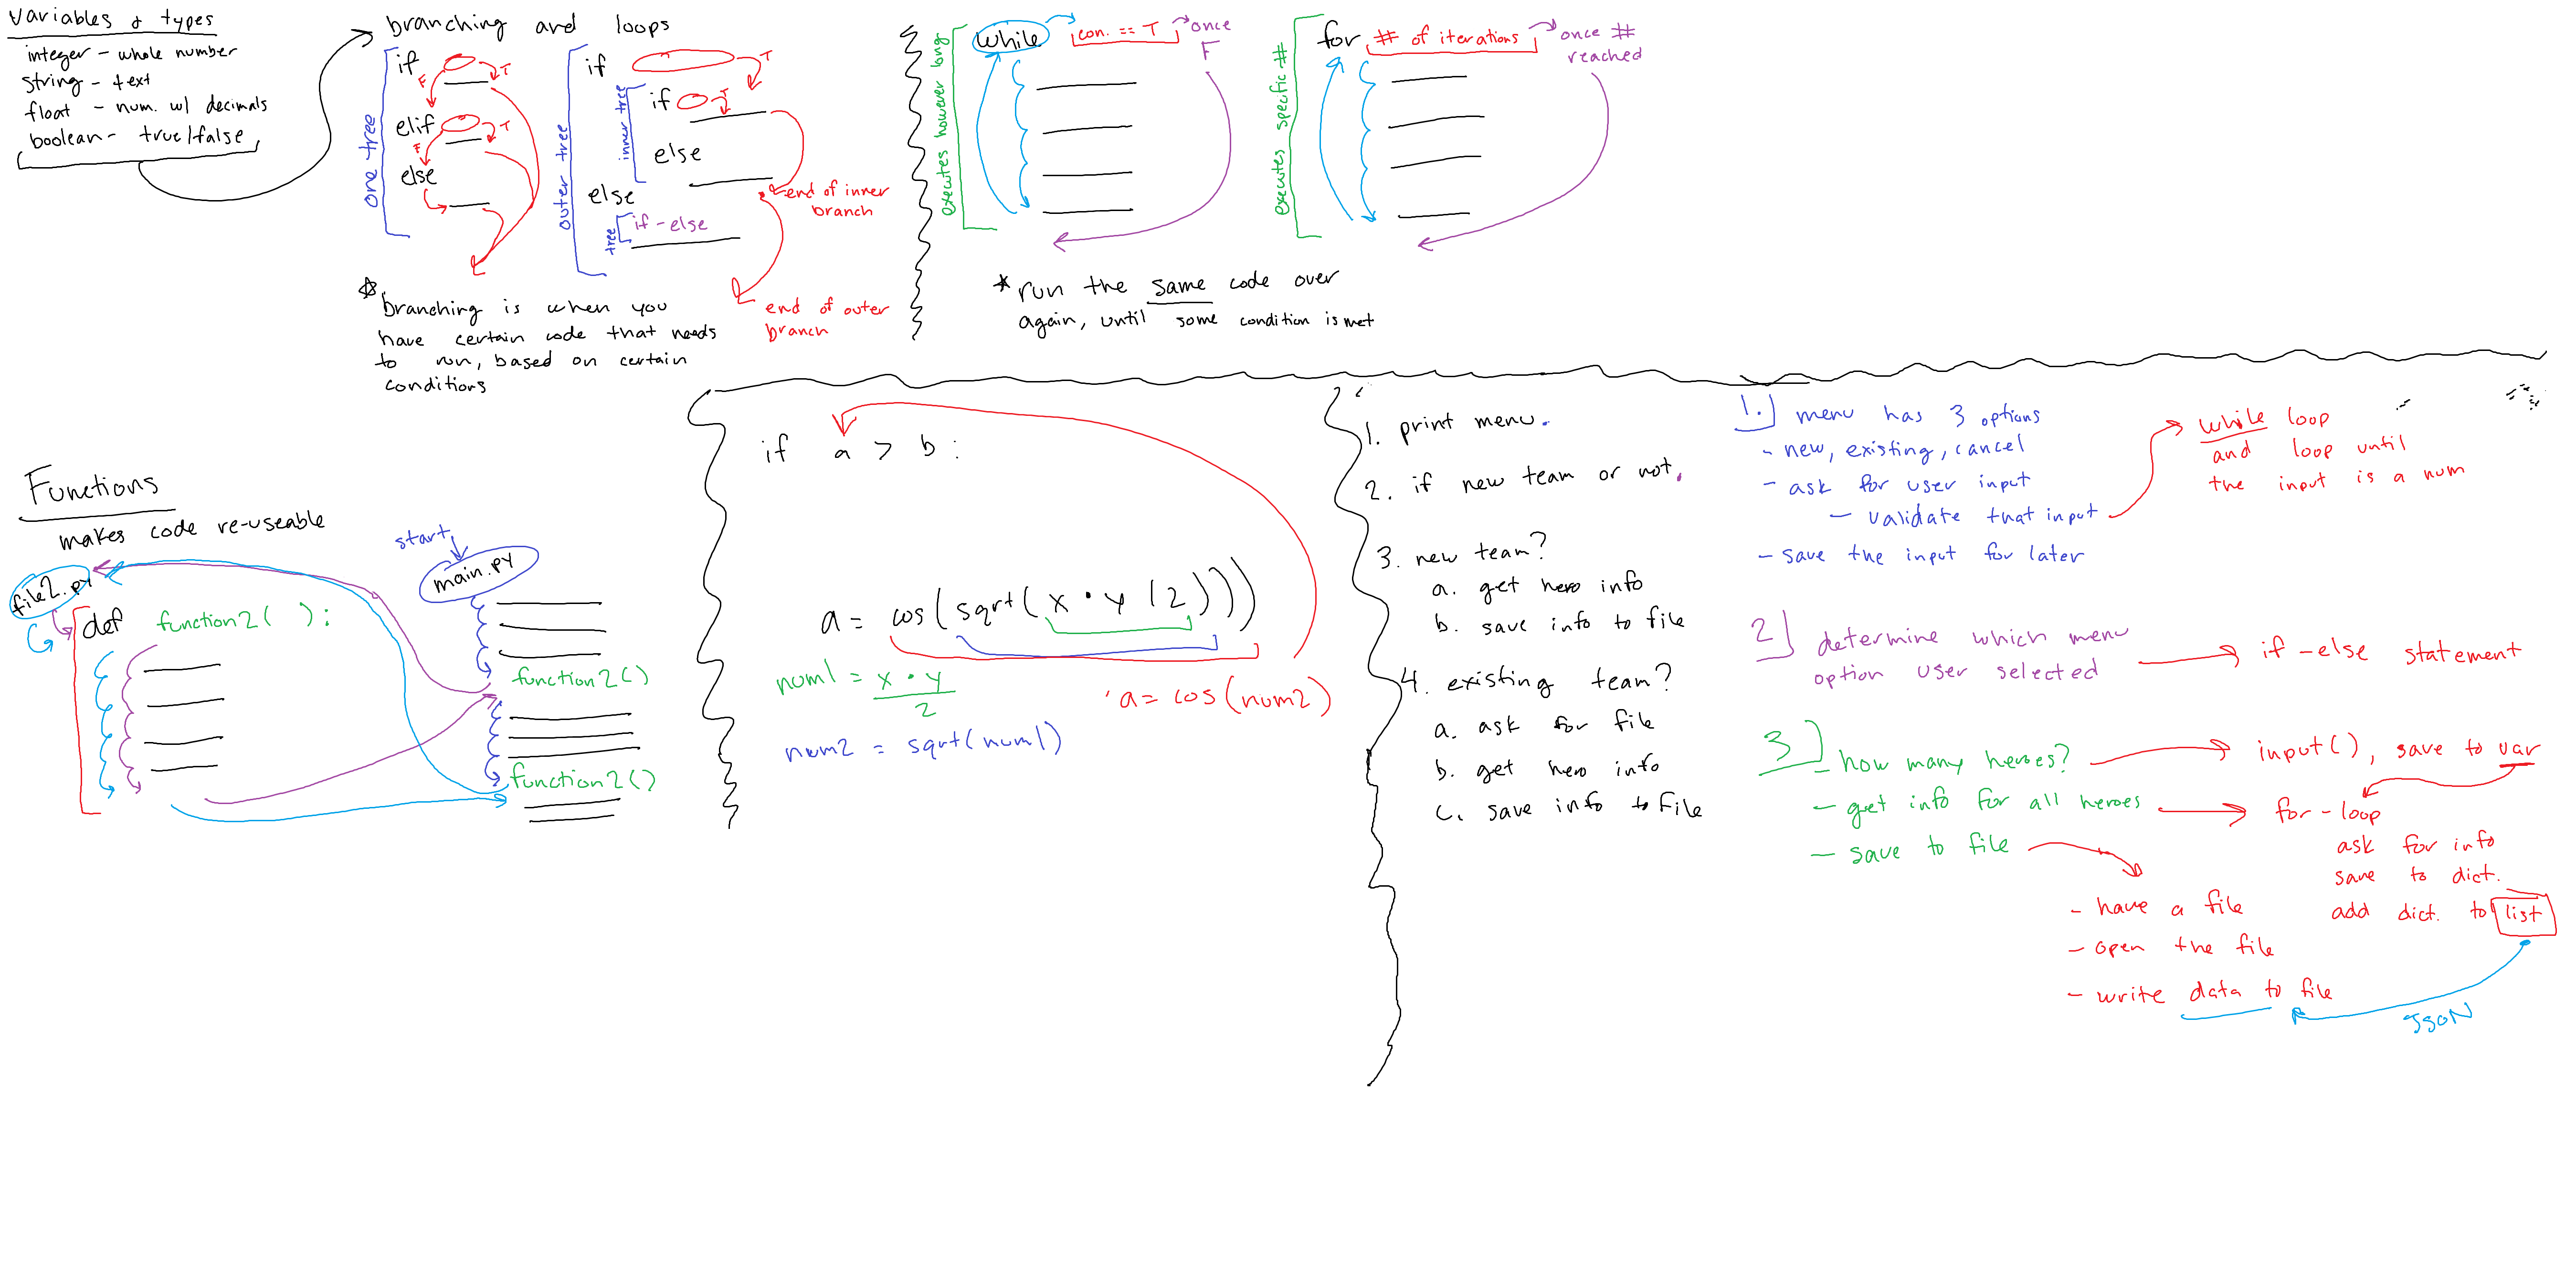 variables & types
integer - whole number
string - text
float - num. w/ decimals
boolean - true/false
branching and loops
one tree
if
T
F
elif
T
F
else
outer tree
if
T
inner tree
if
T
else
end of inner
branch
else
tree
if-else
end of outer
branch
* branching is when you
have certain code that needs
to run, based on certain
conditions
executes however long
while con. == T once
F
executes specific #
for # of iterations once #
reached
* run the same code over
again, until some condition is met
Functions
makes code re-useable
file2.py
def function2( ):
start
main.py
function2()
function2()
if a > b:
a = cos(sqrt(x·y/2)))
num1 = x·y
2
num2 = sqrt(num1)
a = cos(num2)
1. print menu.
2. if new team or not.
3. new team?
a. get hero info
b. save info to file
4. existing team?
a. ask for file
b. get hero info
c. save info to file
1.) menu has 3 options
- new, existing, cancel
- ask for user input
- validate that input
- save the input for later
while loop
and loop until
the input is a num
2) determine which menu
option user selected
if-else statement
3)
- how many heroes?
input(), save to var
- get info for all heroes
for-loop
ask for info
save to dict.
add dict. to list
- save to file
- have a file
- open the file
- write data to file
JSON